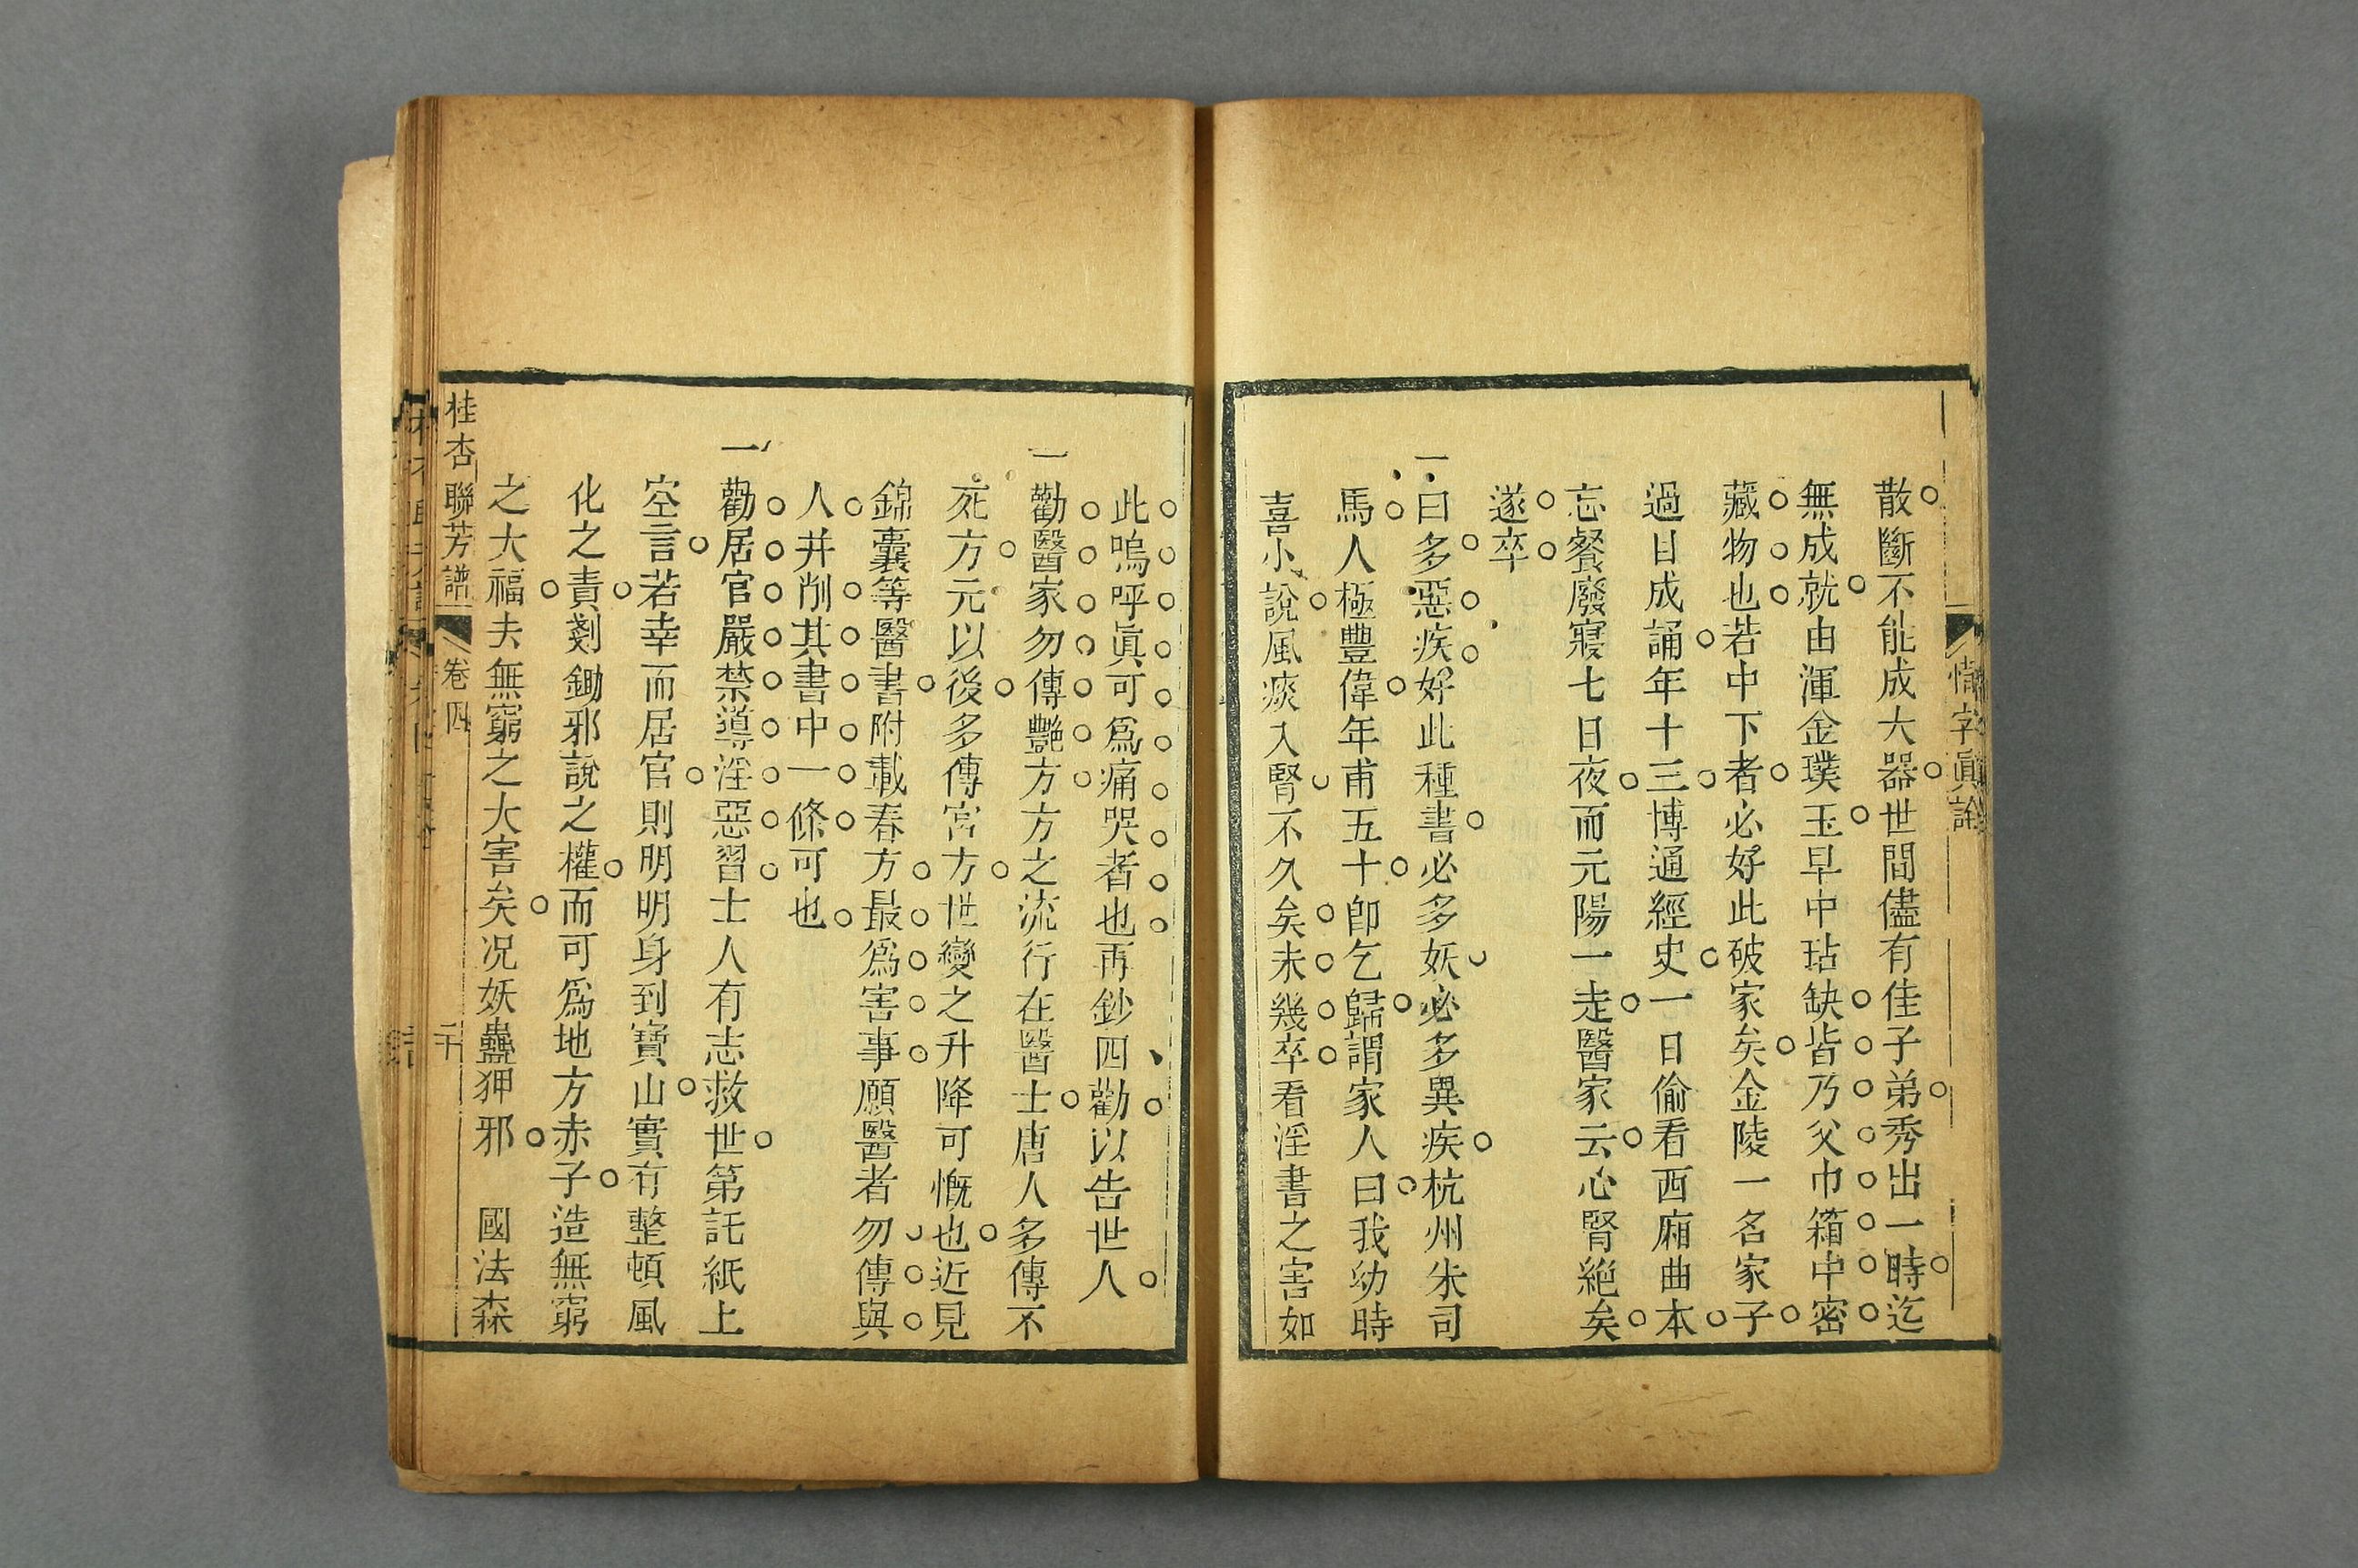 情字眞詮
散斷不能成大器世間儘有佳子弟秀出一時迄
無成就由渾金璞玉早中玷缺皆乃父巾箱中密
藏物也若中下者必好此破家矣金陵一名家子
過目成誦年十三博通經史一日偷看西廂曲本
忘餐廢寢七日夜而元陽一走醫家云心腎絕矣
遂卒
一曰多惡疾好此種書必多妖必多異疾杭州朱司
馬人極豐偉年甫五十卽乞歸謂家人曰我幼時
喜小說風痰入腎不久矣未幾卒看淫書之害如
此嗚呼眞可爲痛哭者也再鈔四勸以告世人
一勸醫家勿傳艷方方之流行在醫士唐人多傳不
死方元以後多傳宮方世變之升降可慨也近見
錦囊等醫書附載春方最爲害事願醫者勿傳與
人并削其書中一條可也
一勸居官嚴禁導淫惡習士人有志救世第託紙上
空言若幸而居官則明明身到寶山實有整頓風
化之責剗鋤邪說之權而可爲地方赤子造無窮
之大福夫無窮之大害矣况妖蠱狎邪 國法森
桂杏聯芳譜 卷四